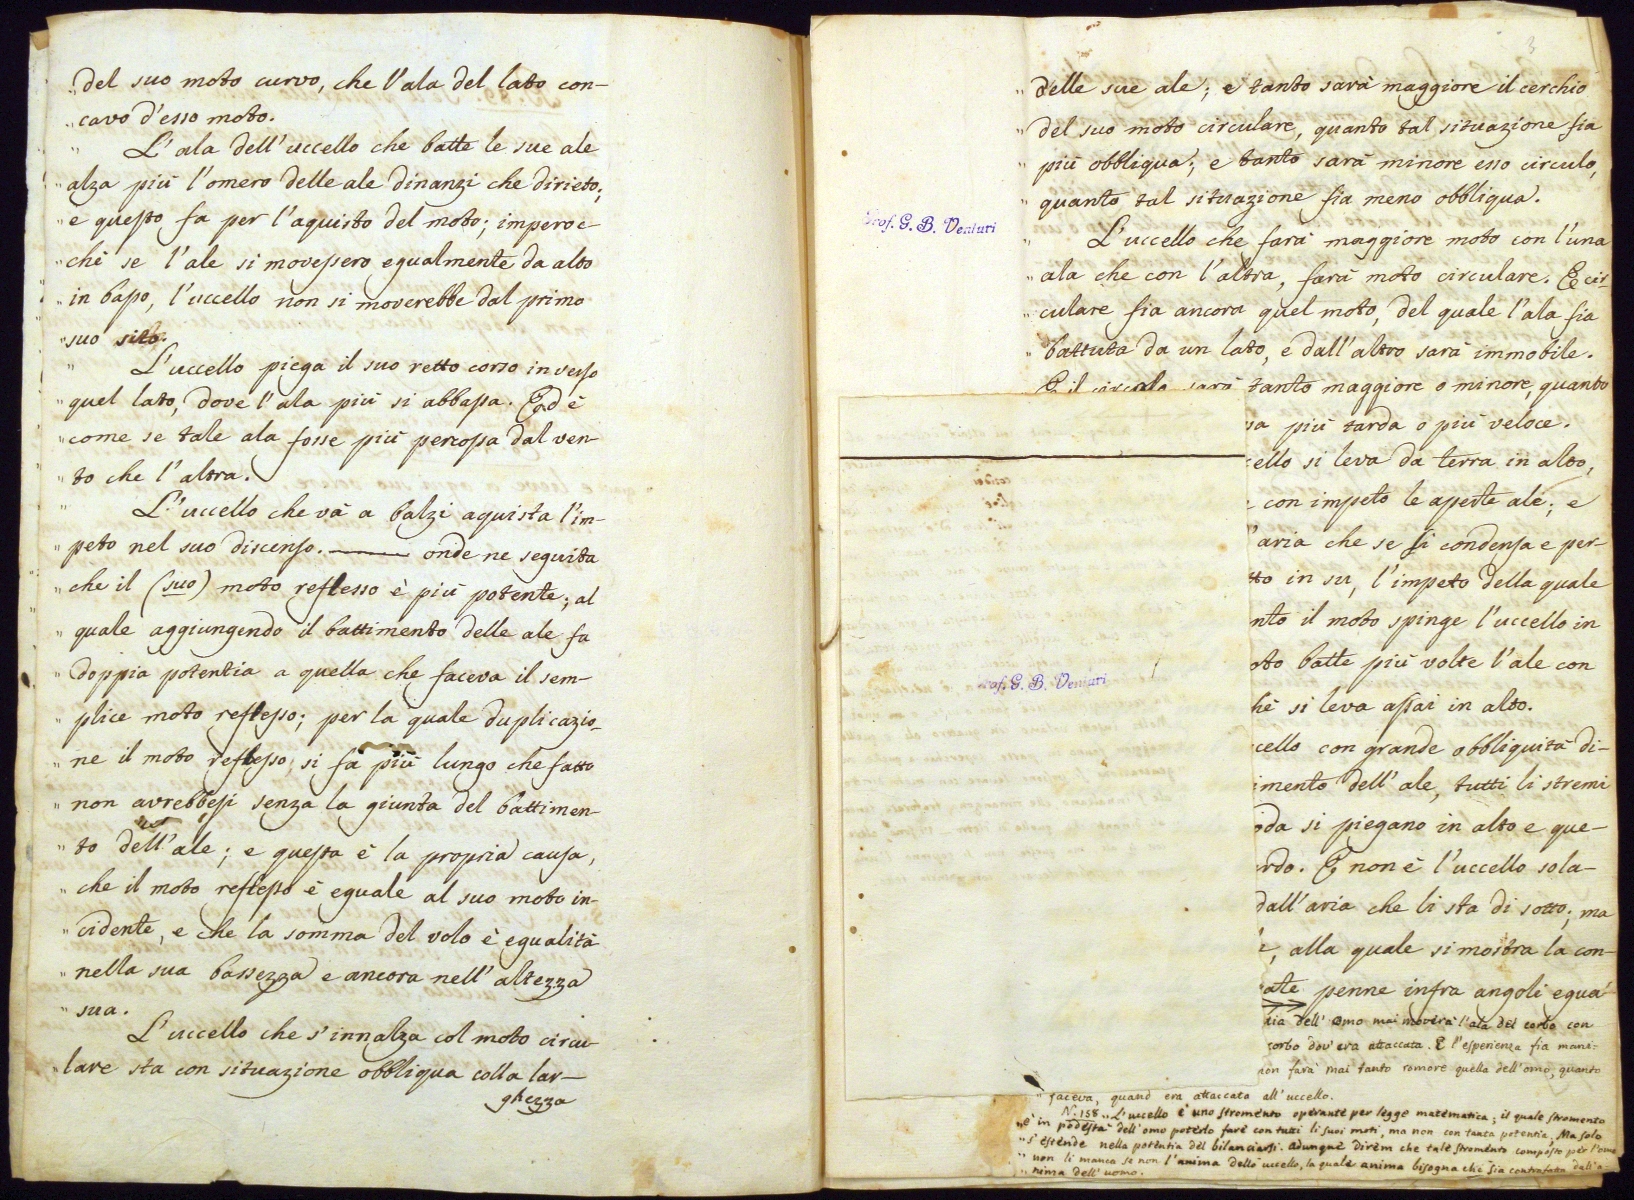 „ del suo moto curvo, che l'ala del lato con-
„ cavo d'esso moto.
„ L'ala dell'uccello che batte le sue ale
„ alza più l'omero delle ale dinanzi che dirieto;
„ e questo fa per l'aquisto del moto; imperoc
„ chè se l'ale si movessero egualmente da alto
„ in basso, l'uccello non si moverebbe dal primo
„ suo sito.
„ L'uccello piega il suo retto corso in verso
„ quel lato, dove l'ala più si abbassa. Ed è
„ come se tale ala fosse più percossa dal ven-
„ to che l'altra.
„ L'uccello che và a balzi aquista l'im-
„ peto nel suo discenso. —— onde ne seguita
„ che il (suo) moto reflesso è più potente; al
„ quale aggiungendo il battimento delle ale fa
„ doppia potentia a quella che faceva il sem-
„ plice moto reflesso; per la quale duplicazio-
„ ne il moto reflesso si fa più lungo che fatto
„ non avrebbesi senza la giunta del battimen-
„ to dell'ale; e questa è la propria causa,
„ che il moto reflesso è eguale al suo moto in-
„ cidente, e che la somma del volo è egualità
„ nella sua bassezza e ancora nell'altezza
„ sua.
L'uccello che s'innalza col moto circu-
„ lare sta con situazione obbliqua colla lar-
ghezza
3
„ delle sue ale; e tanto sarà maggiore il cerchio
„ del suo moto circulare, quanto tal situazione fia
„ più obbliqua; e tanto sarà minore esso circulo,
„ quanto tal situazione fia meno obbliqua.
Prof. G. B. Venturi
„ L'uccello che farà maggiore moto con l'una
„ ala che con l'altra, farà moto circulare. E cir-
„ culare fia ancora quel moto, del quale l'ala fia
„ battuta da un lato, e dall'altro sarà immobile.
E il circulo sarà tanto maggiore o minore, quanto
più tarda o più veloce.
cello si leva da terra in alto,
con impeto le aperte ale; e
'aria che se si condensa e per-
tto in su, l'impeto della quale
nto il moto spinge l'uccello in
oto batte più volte l'ale con
hè si leva assai in alto.
Prof. G. B. Venturi
cello con grande obbliquità di-
imento dell'ale, tutti li stremi
oda si piegano in alto e que-
rdo. E non è l'uccello sola-
dall'aria che li sta di sotto; ma
, alla quale si mostra la con-
ate penne infra angoli egua-
zia dell'omo mai moverà l'ala del corbo con
corbo dov'era attaccata. E l'esperienza fia mani-
non farà mai tanto romore quella dell'omo, quanto
„ faceva, quand era attaccata all'uccello.
N. 158 „ L'uccello è uno stromento operante per legge matematica; il quale stromento
„ è in podestà dell'omo poterlo fare con tutti li suoi moti, ma non con tanta potentia; Ma solo
„ s'estende nella potentia del bilanciarsi. Adunque direm che tale stromento composto per l'omo
„ non li manca se non l'anima dello uccello, la quale anima bisogna che sia contrafatta dall'a-
„ nima dell'uomo.